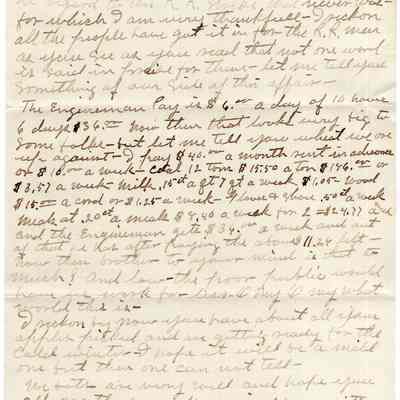 for which I am very thankfull - I reckon
all the people have got it in for the R.R. Men
as you see as you read that not one word
is said in for them - let me tell you
something of our side of this affair -
The Engineman Pay is $6.00 a day of 10 hours
6 days $36.00 now then that looks very big to
some folks - but let me tell you what we are
up against - I pay $40.00 a month rent in advance
or $10.00 a week - Coal 12 tons $15.50 a ton $186.00 or
$3.57 a week - Milk .15¢ a qt 7 qt a week $1.05 - Wood
$15.00 a cord or $1.25 a week - Phone .50¢ a week
Meals at .20¢ a meal $8.40 a week for 2 = $24.77
and the Engineman gets $36.00 a week and out
of that he has after paying the above 11.24 left -
now then brother to your mind is that to
much? and how the poor public would
have to work for
world this is -
I reckon by now you have about all your
apples picked and are getting ready for the
cold winter - I hope it will be a mild
one but then one can not tell -
We both are very well and hope you